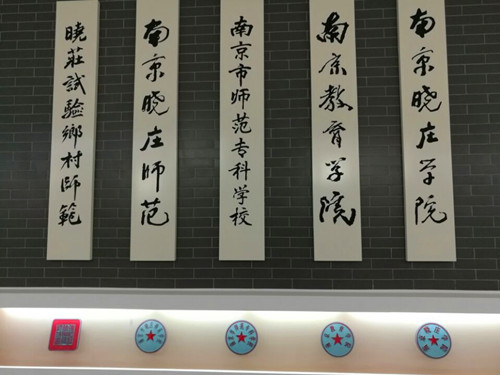 晓莊試驗鄉村師範
南京晓庄师范
南京市师范专科学校
南京教育学院
南京晓庄学院